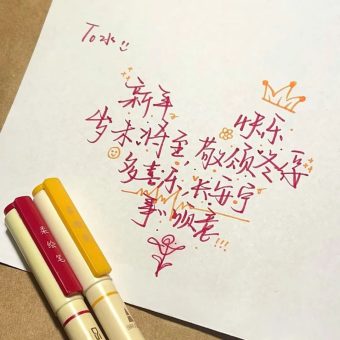 To
新年 快乐
岁末将至,敬颂冬绥
多喜乐,长安宁
事顺意!!!
柔绘笔